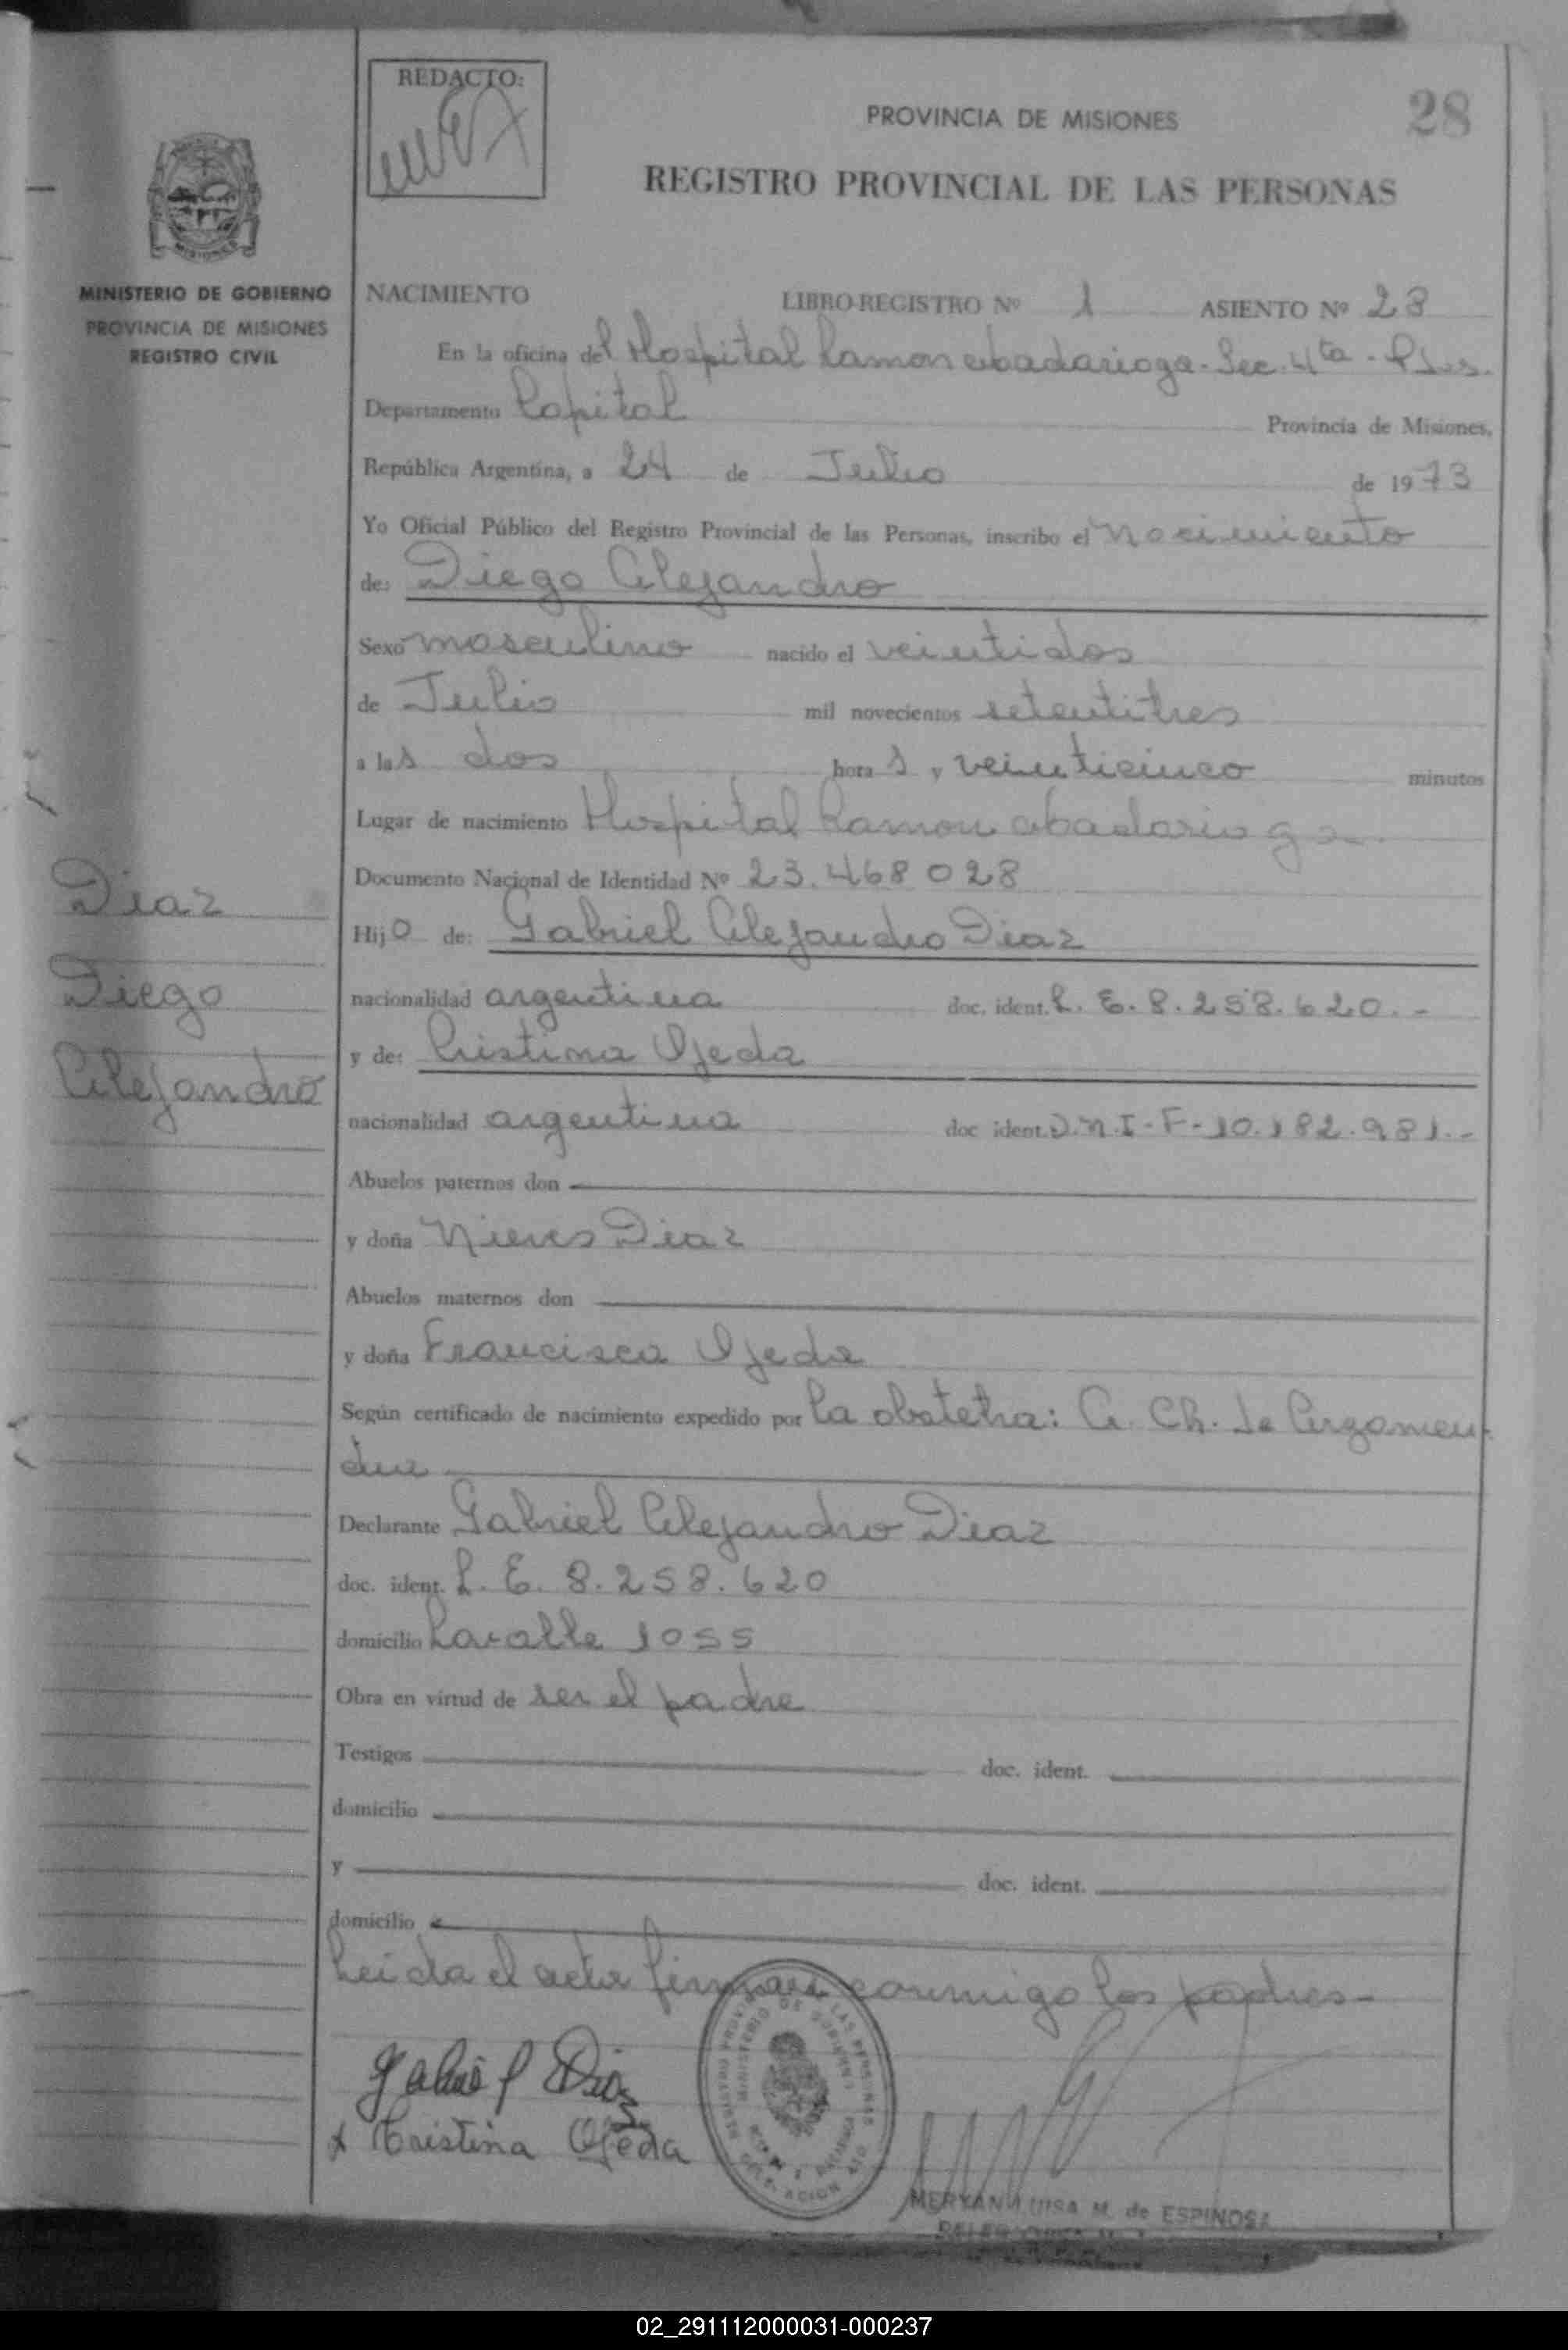 REDACTO:
PROVINCIA DE MISIONES
28
REGISTRO PROVINCIAL DE LAS PERSONAS
MINISTERIO DE GOBIERNO
PROVINCIA DE MISIONES
REGISTRO CIVIL
NACIMIENTO LIBRO-REGISTRO Nº 1 ASIENTO Nº 28
En la oficina del Hospital Ramon abadarioga. Sec. 4ta.
Departamento Capital Provincia de Misiones,
República Argentina, a 24 de Julio de 1973
Yo Oficial Público del Registro Provincial de las Personas, inscribo el Nacimiento
de: Diego Alejandro
Sexo masculino nacido el veintidos
de Julio mil novecientos setentitres
a las dos horas y veinticinco minutos
Lugar de nacimiento Hospital Ramon abadarioga.
Documento Nacional de Identidad Nº 23.468 028
Diaz
Diego
Alejandro
Hijo de: Gabriel Alejandro Diaz
nacionalidad argentina doc. ident. L. E. 8.258.620.-
y de: Cristina Ojeda
nacionalidad argentina doc ident. D.N.I-F-10.182.981.-
Abuelos paternos don
y doña Nieves Diaz
Abuelos maternos don
y doña Francisca Ojeda
Según certificado de nacimiento expedido por la obstetra: A. Ch. de
Declarante Gabriel Alejandro Diaz
doc. ident. L. E. 8.258.620
domicilio Lavalle 1055
Obra en virtud de ser el padre
Testigos doc. ident.
domicilio
y doc. ident.
domicilio
Leida el acta firman conmigo los padres-
Gabriel Diaz
x Cristina Ojeda
LUISA M. de ESPINOSA
02_291112000031-000237